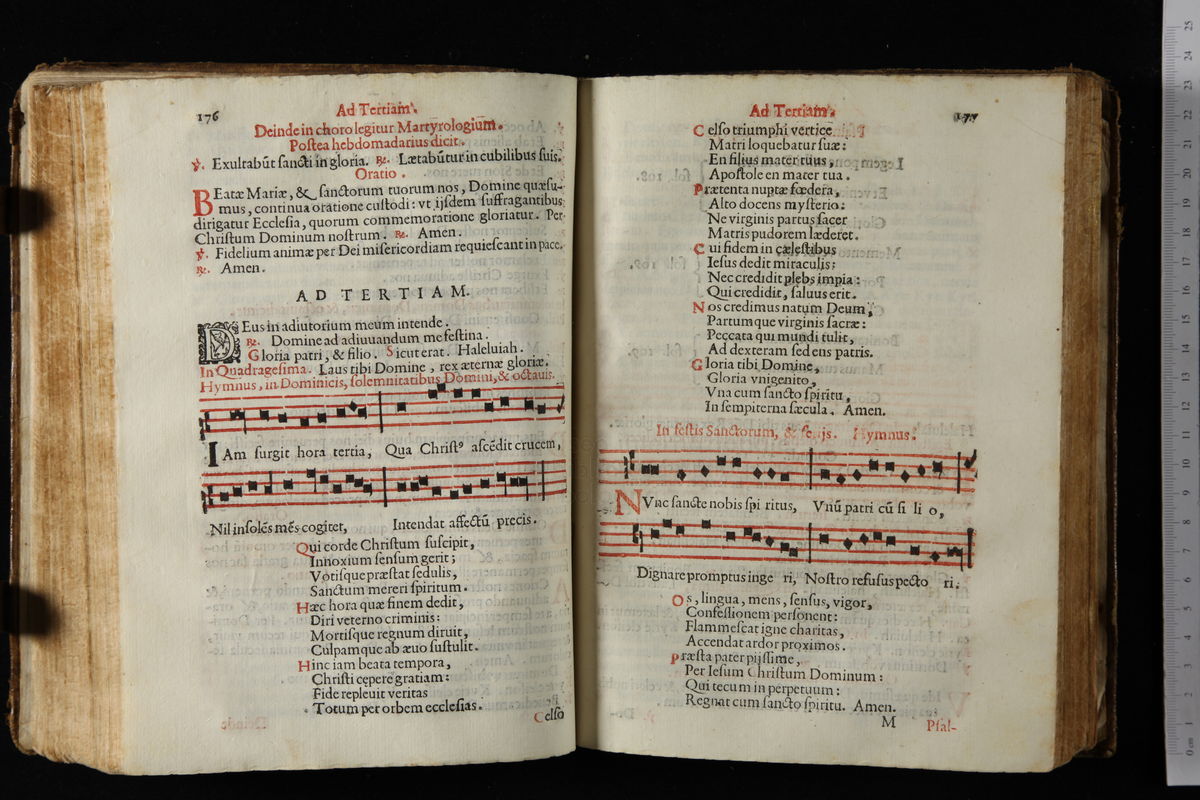 176
Ad Tertiam.
Deinde in choro legitur Martyrologium.
Postea hebdomadarius dicit.
℣. Exultabūt sancti in gloria. ℞. Lætabūtur in cubilibus suis.
Oratio.
BEatæ Mariæ, & sanctorum tuorum nos, Domine quæsu-
mus, continua oratione custodi: vt ijsdem suffragantibus
dirigatur Ecclesia, quorum commemoratione gloriatur. Per
Christum Dominum nostrum. ℞. Amen.
℣. Fidelium animæ per Dei misericordiam requiescant in pace.
℞. Amen.
AD TERTIAM.
DEus in adiutorium meum intende.
℞. Domine ad adiuuandum me festina.
Gloria patri, & filio. Sicut erat. Haleluiah.
In Quadragesima. Laus tibi Domine, rex æternæ gloriæ.
Hymnus, in Dominicis, solemnitatibus Domini, & octauis.
IAm surgit hora tertia, Qua Christꝰ ascēdit crucem,
Nil insolēs mēs cogitet, Intendat affectū precis.
Qui corde Christum suscipit,
Innoxium sensum gerit;
Votisque præstat sedulis,
Sanctum mereri spiritum.
Hæc hora quæ finem dedit,
Diri veterno criminis:
Mortisque regnum diruit,
Culpamque ab æuo sustulit.
Hinc iam beata tempora,
Christi cępere gratiam:
Fide repleuit veritas
Totum per orbem ecclesias.
Celso
177
Ad Tertiam.
Celso triumphi vertice
Matri loquebatur suæ:
En filius mater tuus,
Apostole en mater tua.
Prætenta nuptæ fœdera,
Alto docens mysterio:
Ne virginis partus sacer
Matris pudorem læderet.
Cui fidem in cælestibus
Iesus dedit miraculis;
Nec credidit plebs impia:
Qui credidit, saluus erit.
Nos credimus natum Deum,
Partumque virginis sacræ:
Peccata qui mundi tulit,
Ad dexteram sedens patris.
Gloria tibi Domine,
Gloria vnigenito,
Vna cum sancto spiritu,
In sempiterna sæcula. Amen.
In festis Sanctorum, & ferijs. Hymnus.
NVnc sancte nobis spi ritus, Vnū patri cū fi li o,
Dignare promptus inge ri, Nostro refusus pecto ri.
Os, lingua, mens, sensus, vigor,
Confessionem personent:
Flammescat igne charitas,
Accendat ardor proximos.
Præsta pater pijssime,
Per Iesum Christum Dominum:
Qui tecum in perpetuum:
Regnat cum sancto spiritu. Amen.
M
Psal-